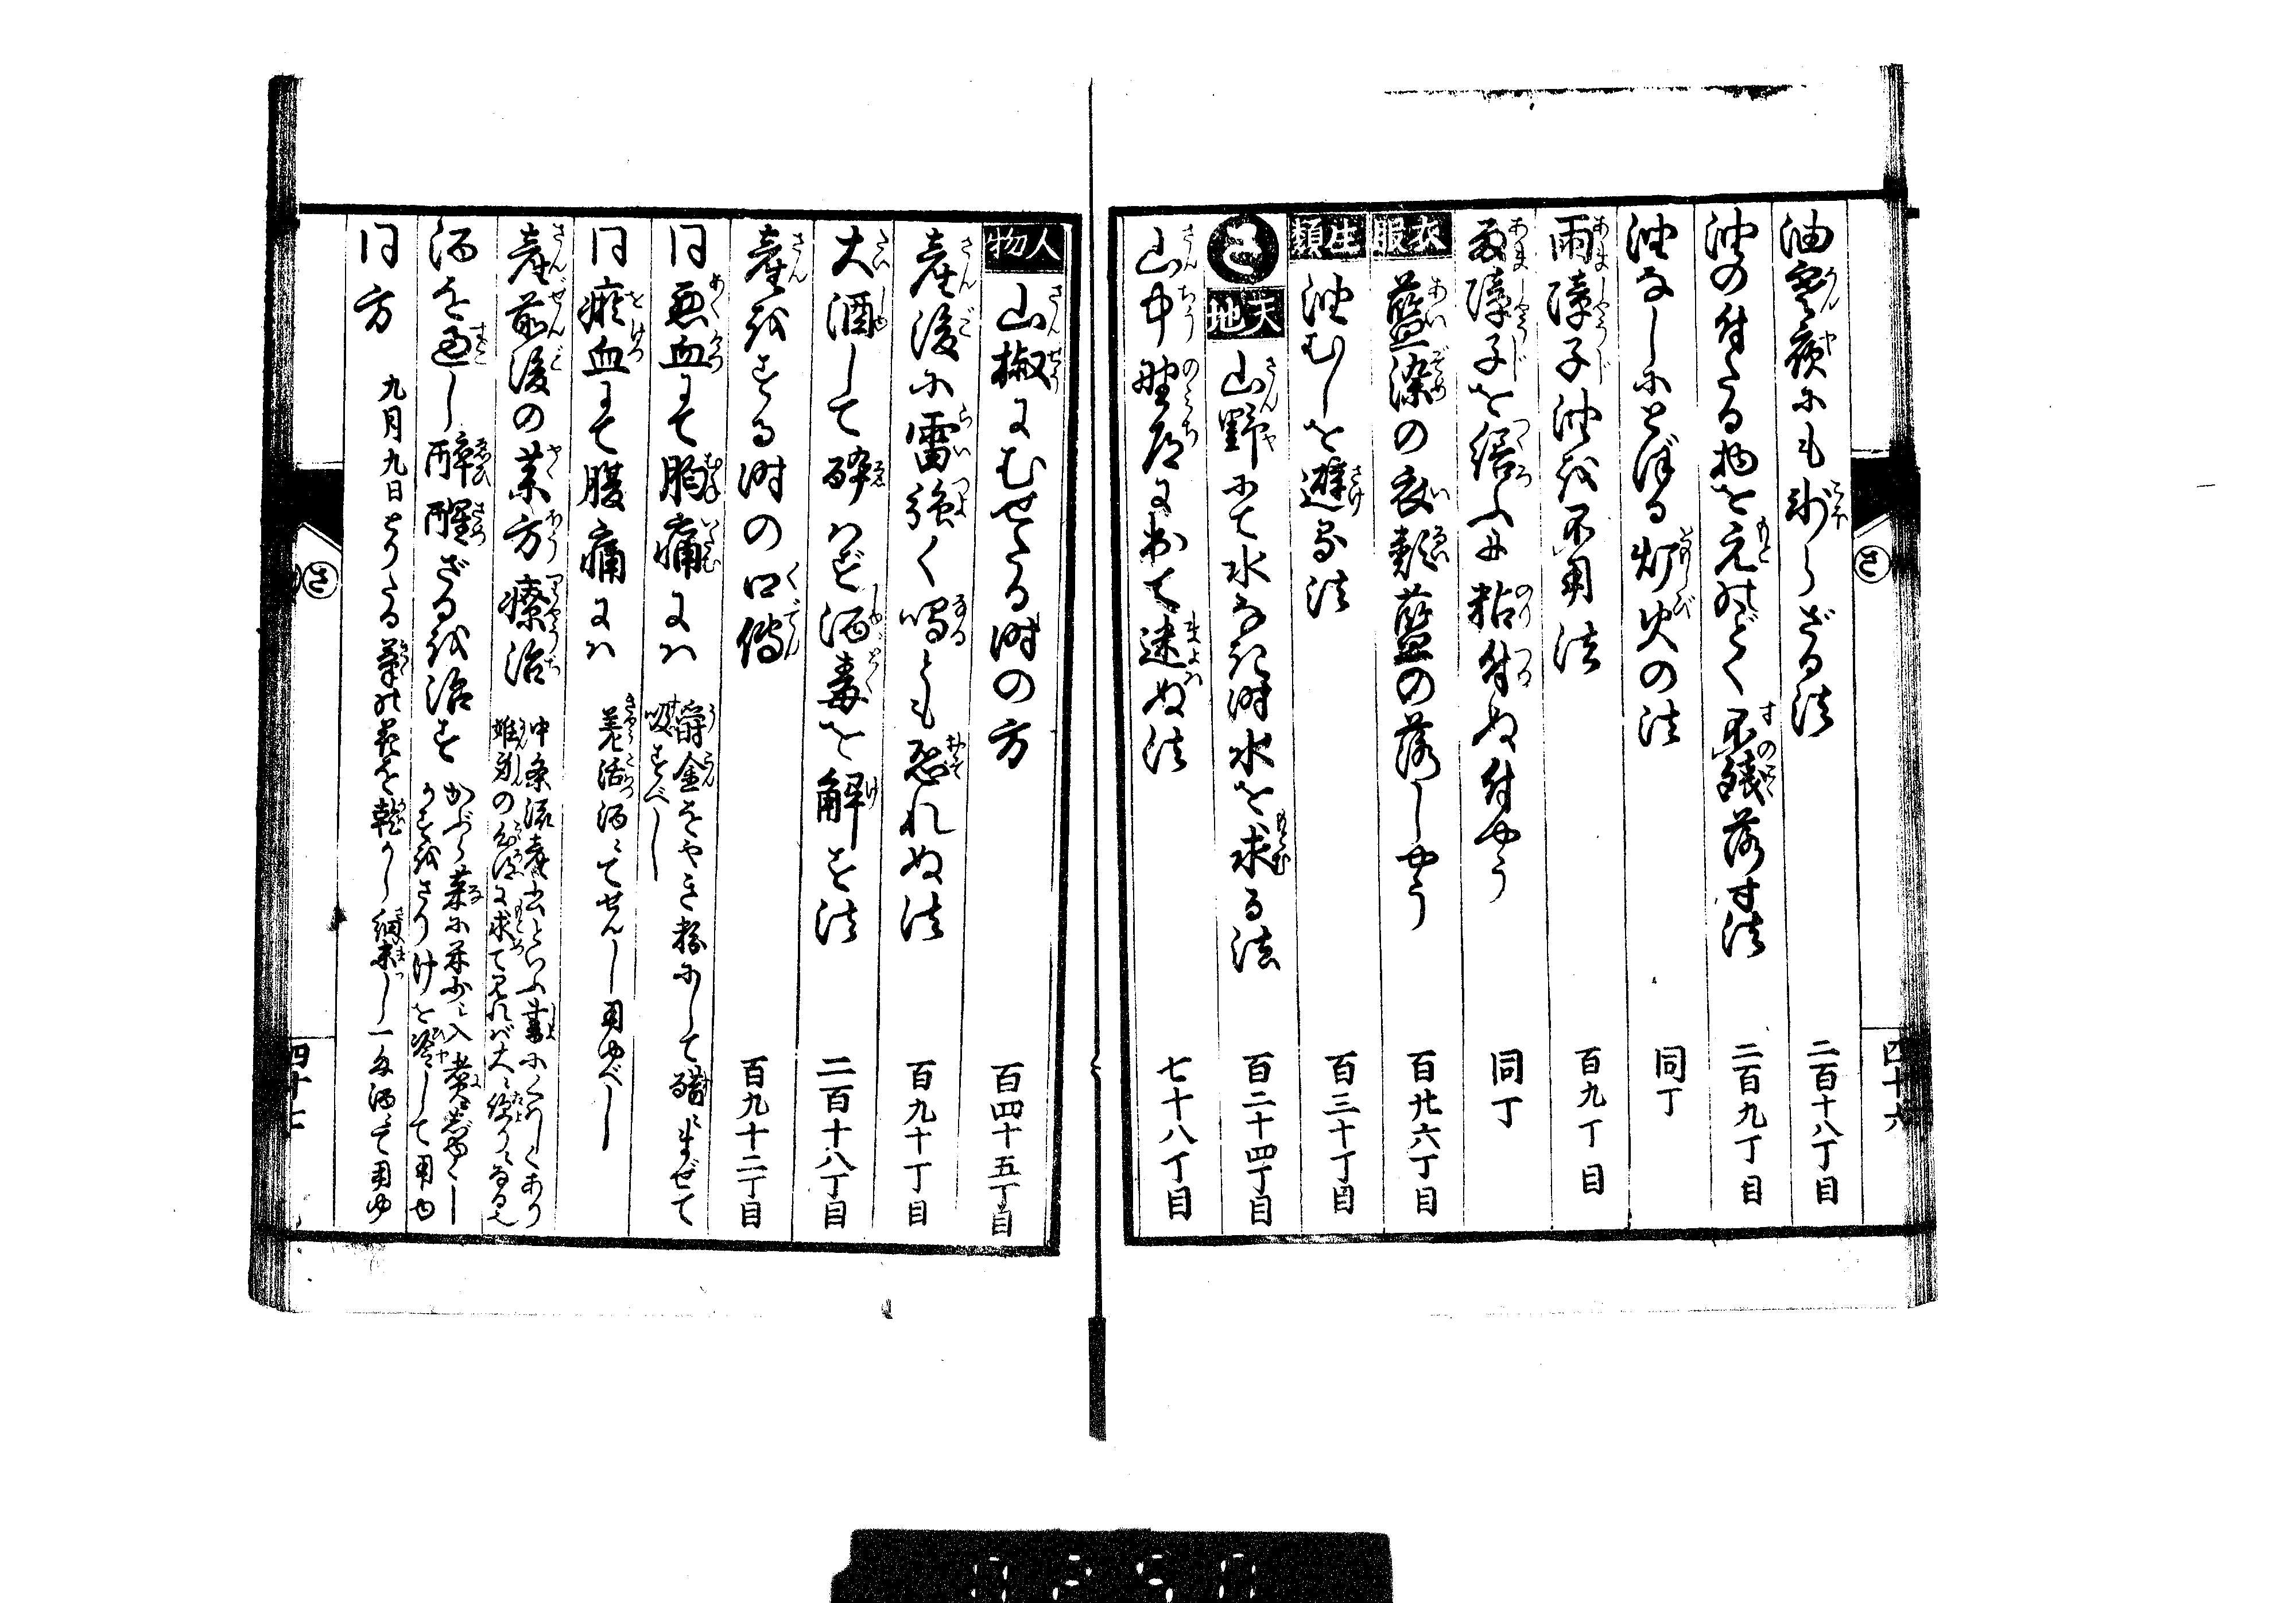 油寒夜にも氷らざる法　二百十八丁目
油の付たる物を元のごとく不残落す法　二百九丁目
油なしにとぼる灯火の法　同丁
雨障子油を不用法　百九丁目
雨障子を繕ふ粘付ぬ付やう　同丁
衣服　藍染の衣類藍の落しやう　百廿六丁目
生類　油むしを避る法　百三十丁目
さ　天地　山野にて水なき時水を求る法　百二十四丁目
山中野道に出て迷ぬ法　七十八丁目
さ　四十六
人物　山椒にむせたる時の方　百四十五丁目
産後に雷強く鳴とも恐れぬ法　百九十丁目
大酒して酔はず酒毒を解す法　二百十八丁目
産をする時の口傳　百九十二丁目
同悪血にて胸痛には　欝金をやき粉にして醋にまぜて
吸すべし
同瘀血にて腹痛には　羌活酒にてせんじ用ゆべし
産前後の薬方療治　中条流産書といふ書にくわしくあり
難産の
酒を過し酔醒ざるを治す　かぶら菜に米少し入煮
さりけを冷して用ゆ
同方　九月九日とりたる菊の花を乾かし細末し一匁酒にて用ゆ
さ　四十七